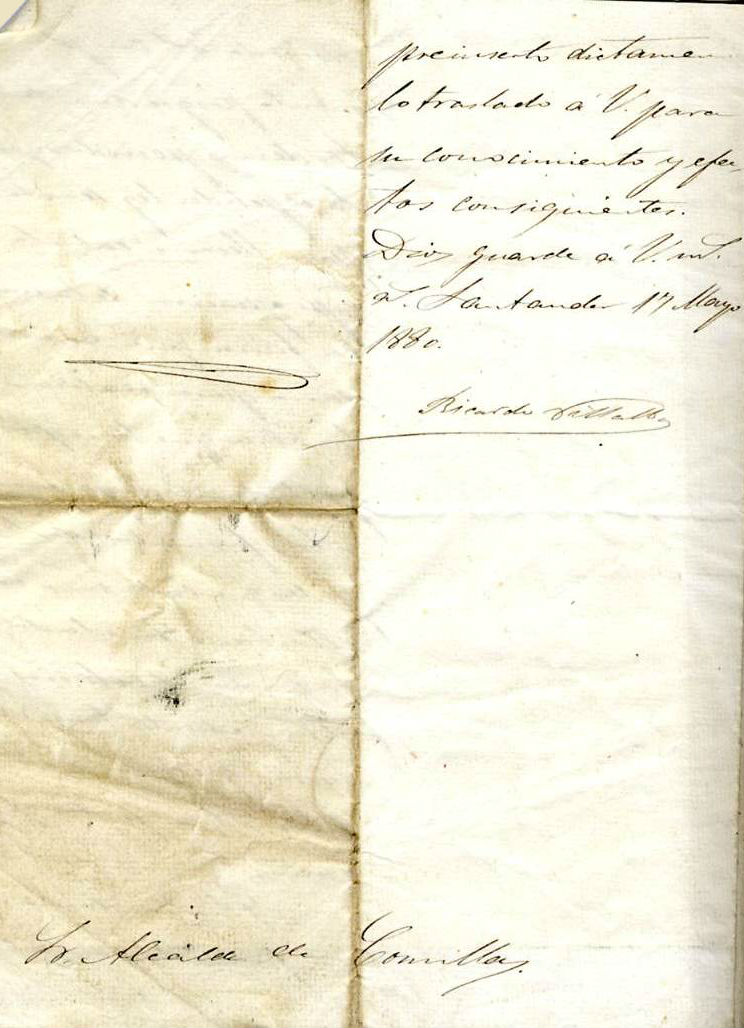 preinserto dictamen
lo traslado á V. para
su conocimiento y efec-
tos consiguientes.
Dios guarde á V. m.s
a.s Santander 17 Mayo
1880.
Ricardo Villalba
Sr. Alcalde de Comillas.